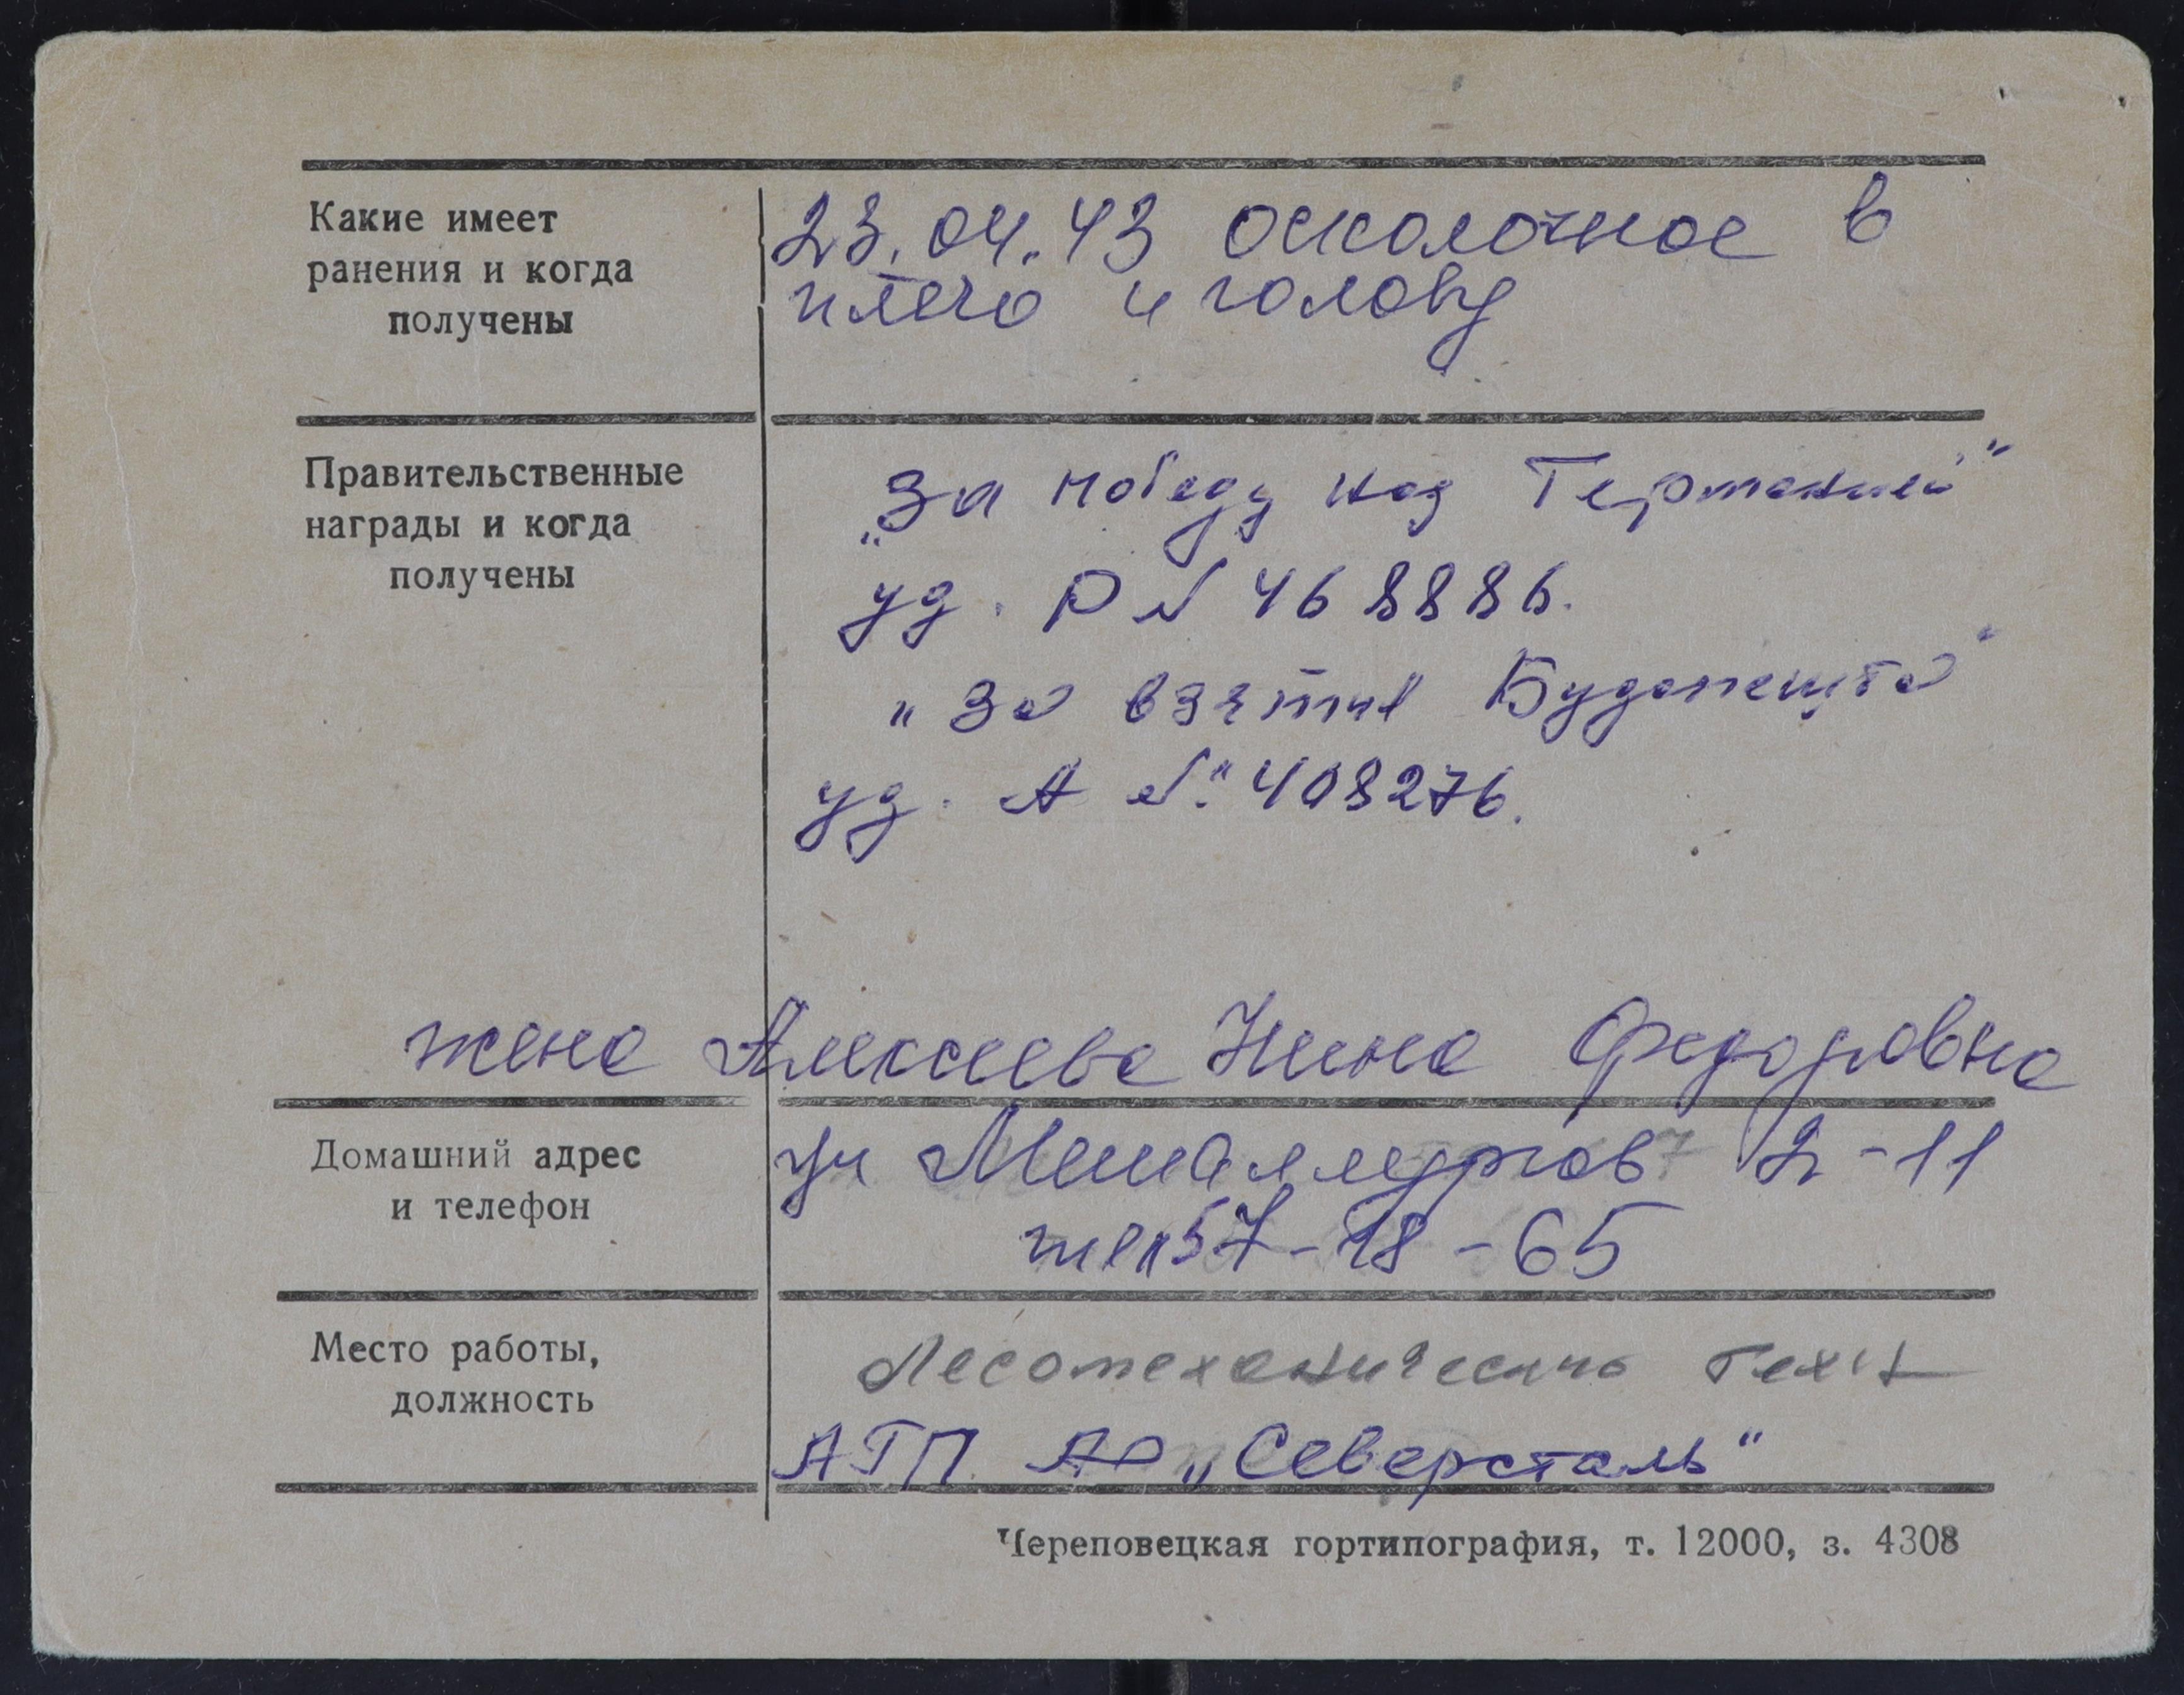 Какие имеет
ранения и когда
получены
23.04.43 осколочное в
плечо и голову
Правительственные
награды и когда
получены
„За победу над Германией"
уд. Р № 468886.
„За взятие Будапешта"
уд. А № 408276.
жена Алексеева Нина Федоровна
Домашний адрес
и телефон
ул Металлургов 2-11
тел 57-18-65
Место работы,
должность
Лесомеханический техн
АТП АО „Северсталь"
Череповецкая гортипография, т. 12000, з. 4308